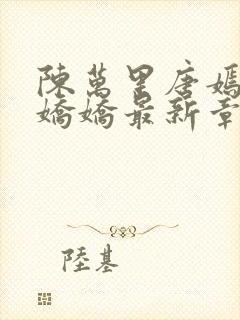 陳萬里唐嫣
嬌嬌最新章
陸基